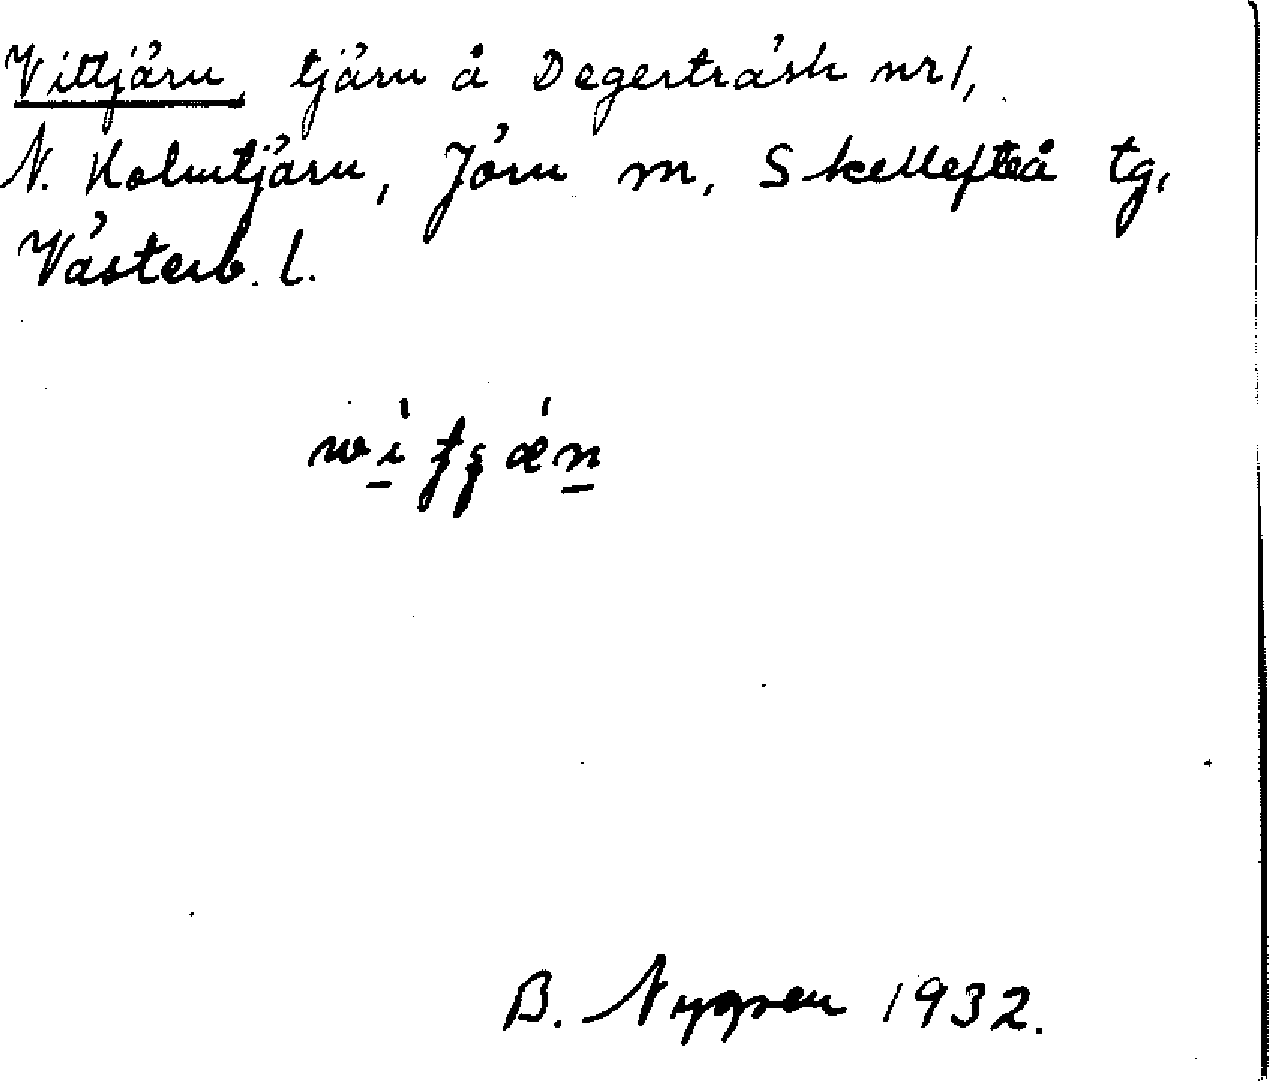 Vittjärn, tjärn å Degerträsk nr 1,
N. Holmtjärn, Jörn m, Skellefteå tg,
Västerb. l.
B. Nygren 1932.